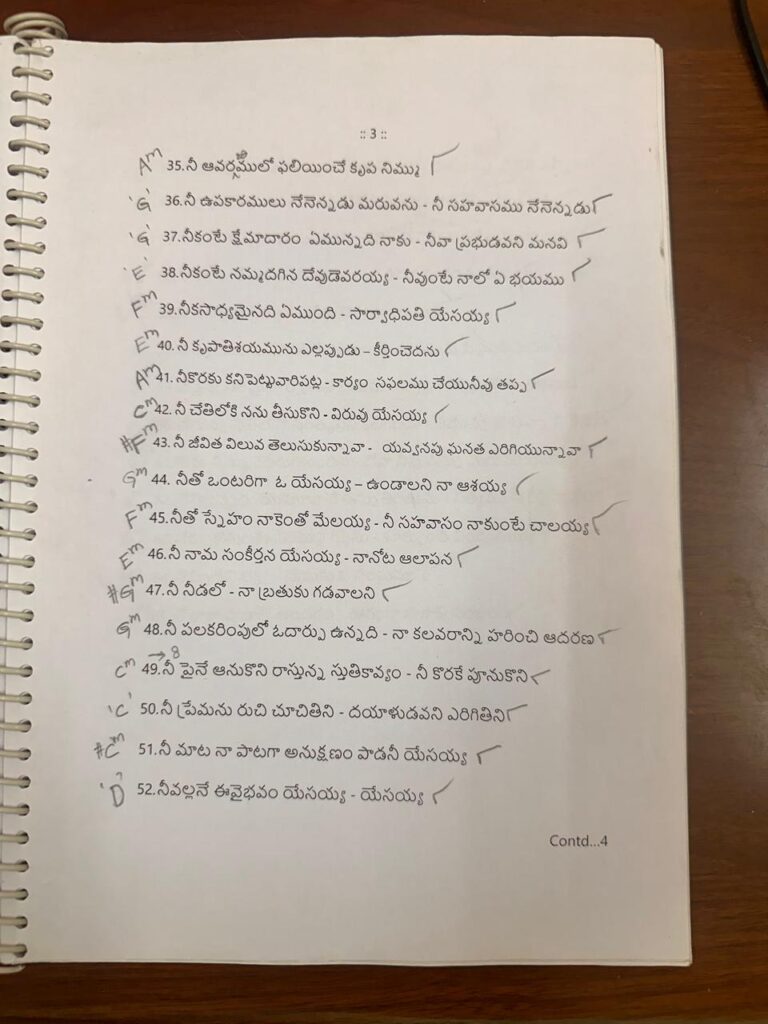 :: 3 ::
Am 35.నీ ఆవర్ణములో ఫలియించే కృప నిమ్ము
'G' 36.నీ ఉపకారములు నేనెన్నడు మరువను - నీ సహవాసము నేనెన్నడు
'G' 37.నీకంటే క్షేమాదారం ఏమున్నది నాకు - నీవా ప్రభుడవని మనవి
'E' 38.నీకంటే నమ్మదగిన దేవుడెవరయ్య - నీవుంటే నాలో ఏ భయము
Fm 39.నీకసాధ్యమైనది ఏముంది - సార్వాధిపతి యేసయ్య
Em 40.నీ కృపాతిశయమును ఎల్లప్పుడు – కీర్తించెదను
Am 41.నీకొరకు కనిపెట్టువారిపట్ల - కార్యం సఫలము చేయునీవు తప్ప
Cm 42.నీ చేతిలోకి నను తీసుకొని - విరువు యేసయ్య
#Fm 43.నీ జీవిత విలువ తెలుసుకున్నావా - యవ్వనపు ఘనత ఎరిగియున్నావా
Gm 44. నీతో ఒంటరిగా ఓ యేసయ్య – ఉండాలని నా ఆశయ్య
Fm 45.నీతో స్నేహం నాకెంతో మేలయ్య - నీ సహవాసం నాకుంటే చాలయ్య
Em 46.నీ నామ సంకీర్తన యేసయ్య - నానోట ఆలాపన
#Gm 47.నీ నీడలో - నా బ్రతుకు గడవాలని
Gm 48.నీ పలకరింపులో ఓదార్పు ఉన్నది - నా కలవరాన్ని హరించి ఆదరణ
→ 8
Cm 49.నీ పైనే ఆనుకొని రాస్తున్న స్తుతికావ్యం - నీ కొరకే పూనుకొని
'C' 50.నీ ప్రేమను రుచి చూచితిని - దయాళుడవని ఎరిగితిని
#Cm 51.నీ మాట నా పాటగా అనుక్షణం పాడనీ యేసయ్య
'D' 52.నీవల్లనే ఈవైభవం యేసయ్య - యేసయ్య
Contd...4